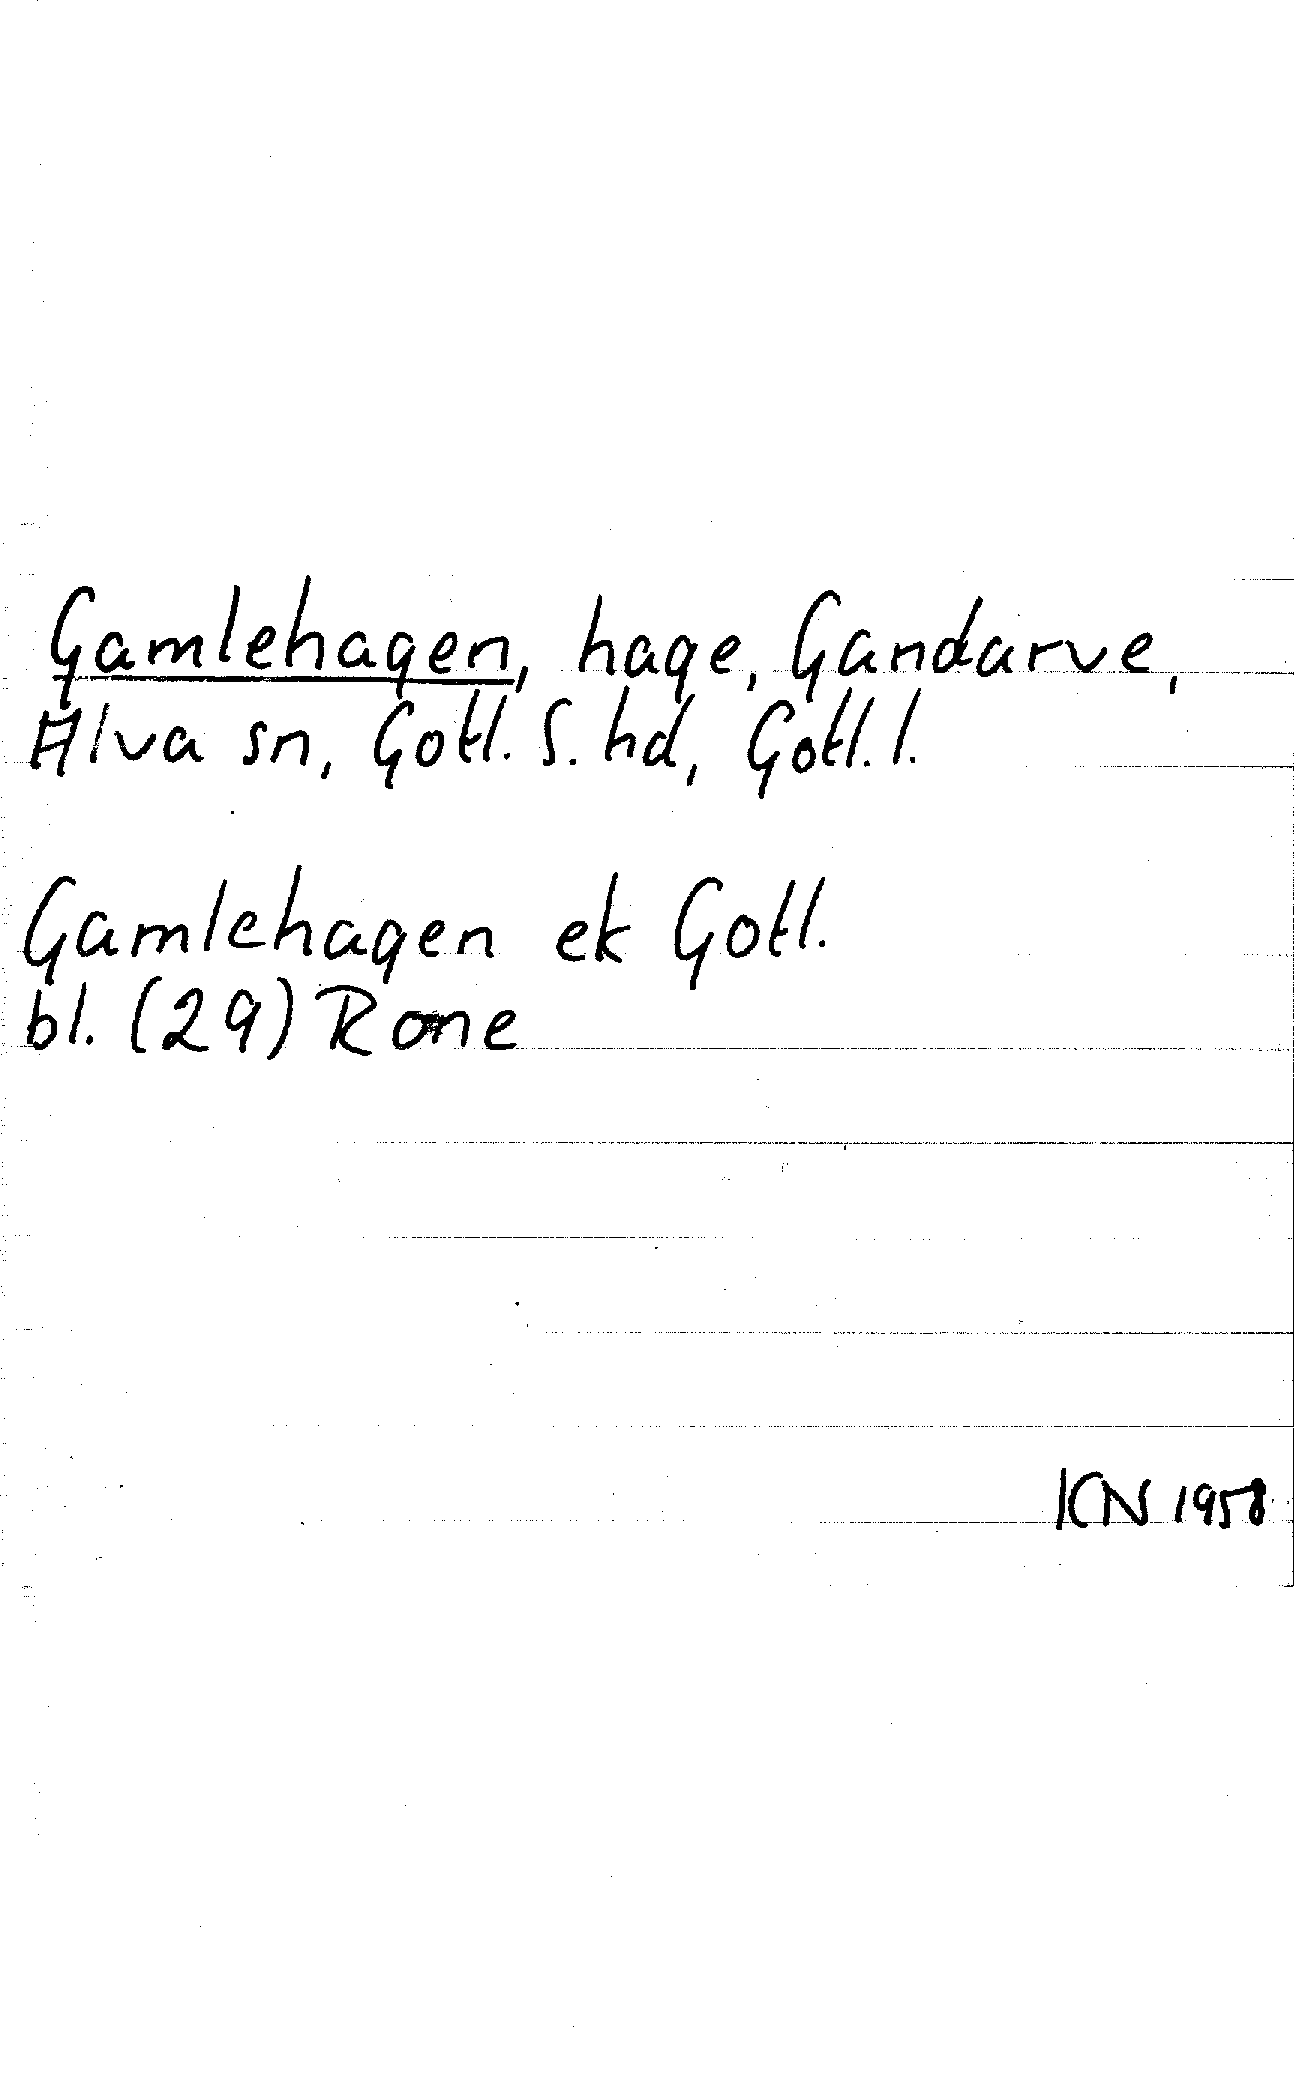 Gamlehagen, hage, Gandarve,
Alva sn, Gotl. S. hd, Gotl. l.
Gamlehagen ek Gotl.
bl. (29) Rone
KN 1958